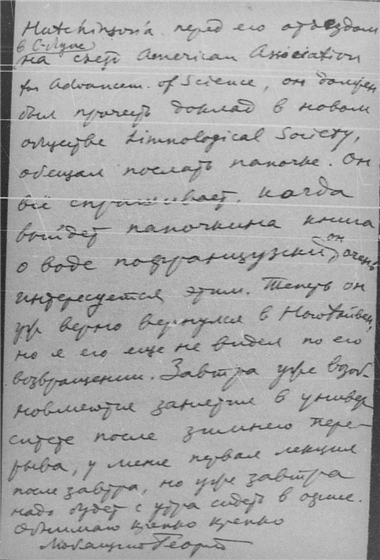 Hutchinson'a перед его отъездом
в С-Луис
на съезд American Association
for Advancem. of Science, он должен
был прочесть доклад в новом
обществе Limnological Society,
обещал послать папочке. Он
всё спрашивает, когда
выйдет папочкина книга
о воде пофранцузски, он очень
интересуется этим. Теперь он
уж верно вернулся в Нью Хэйвен,
но я его еще не видел по его
возвращении. Завтра уже возоб
новляются занятия в универ
ситете после зимнего пере-
рыва, у меня первая лекция
после завтра, но уже завтра
надо будет с утра сидеть в офисе.
Обнимаю крепко крепко
Любящий Георг